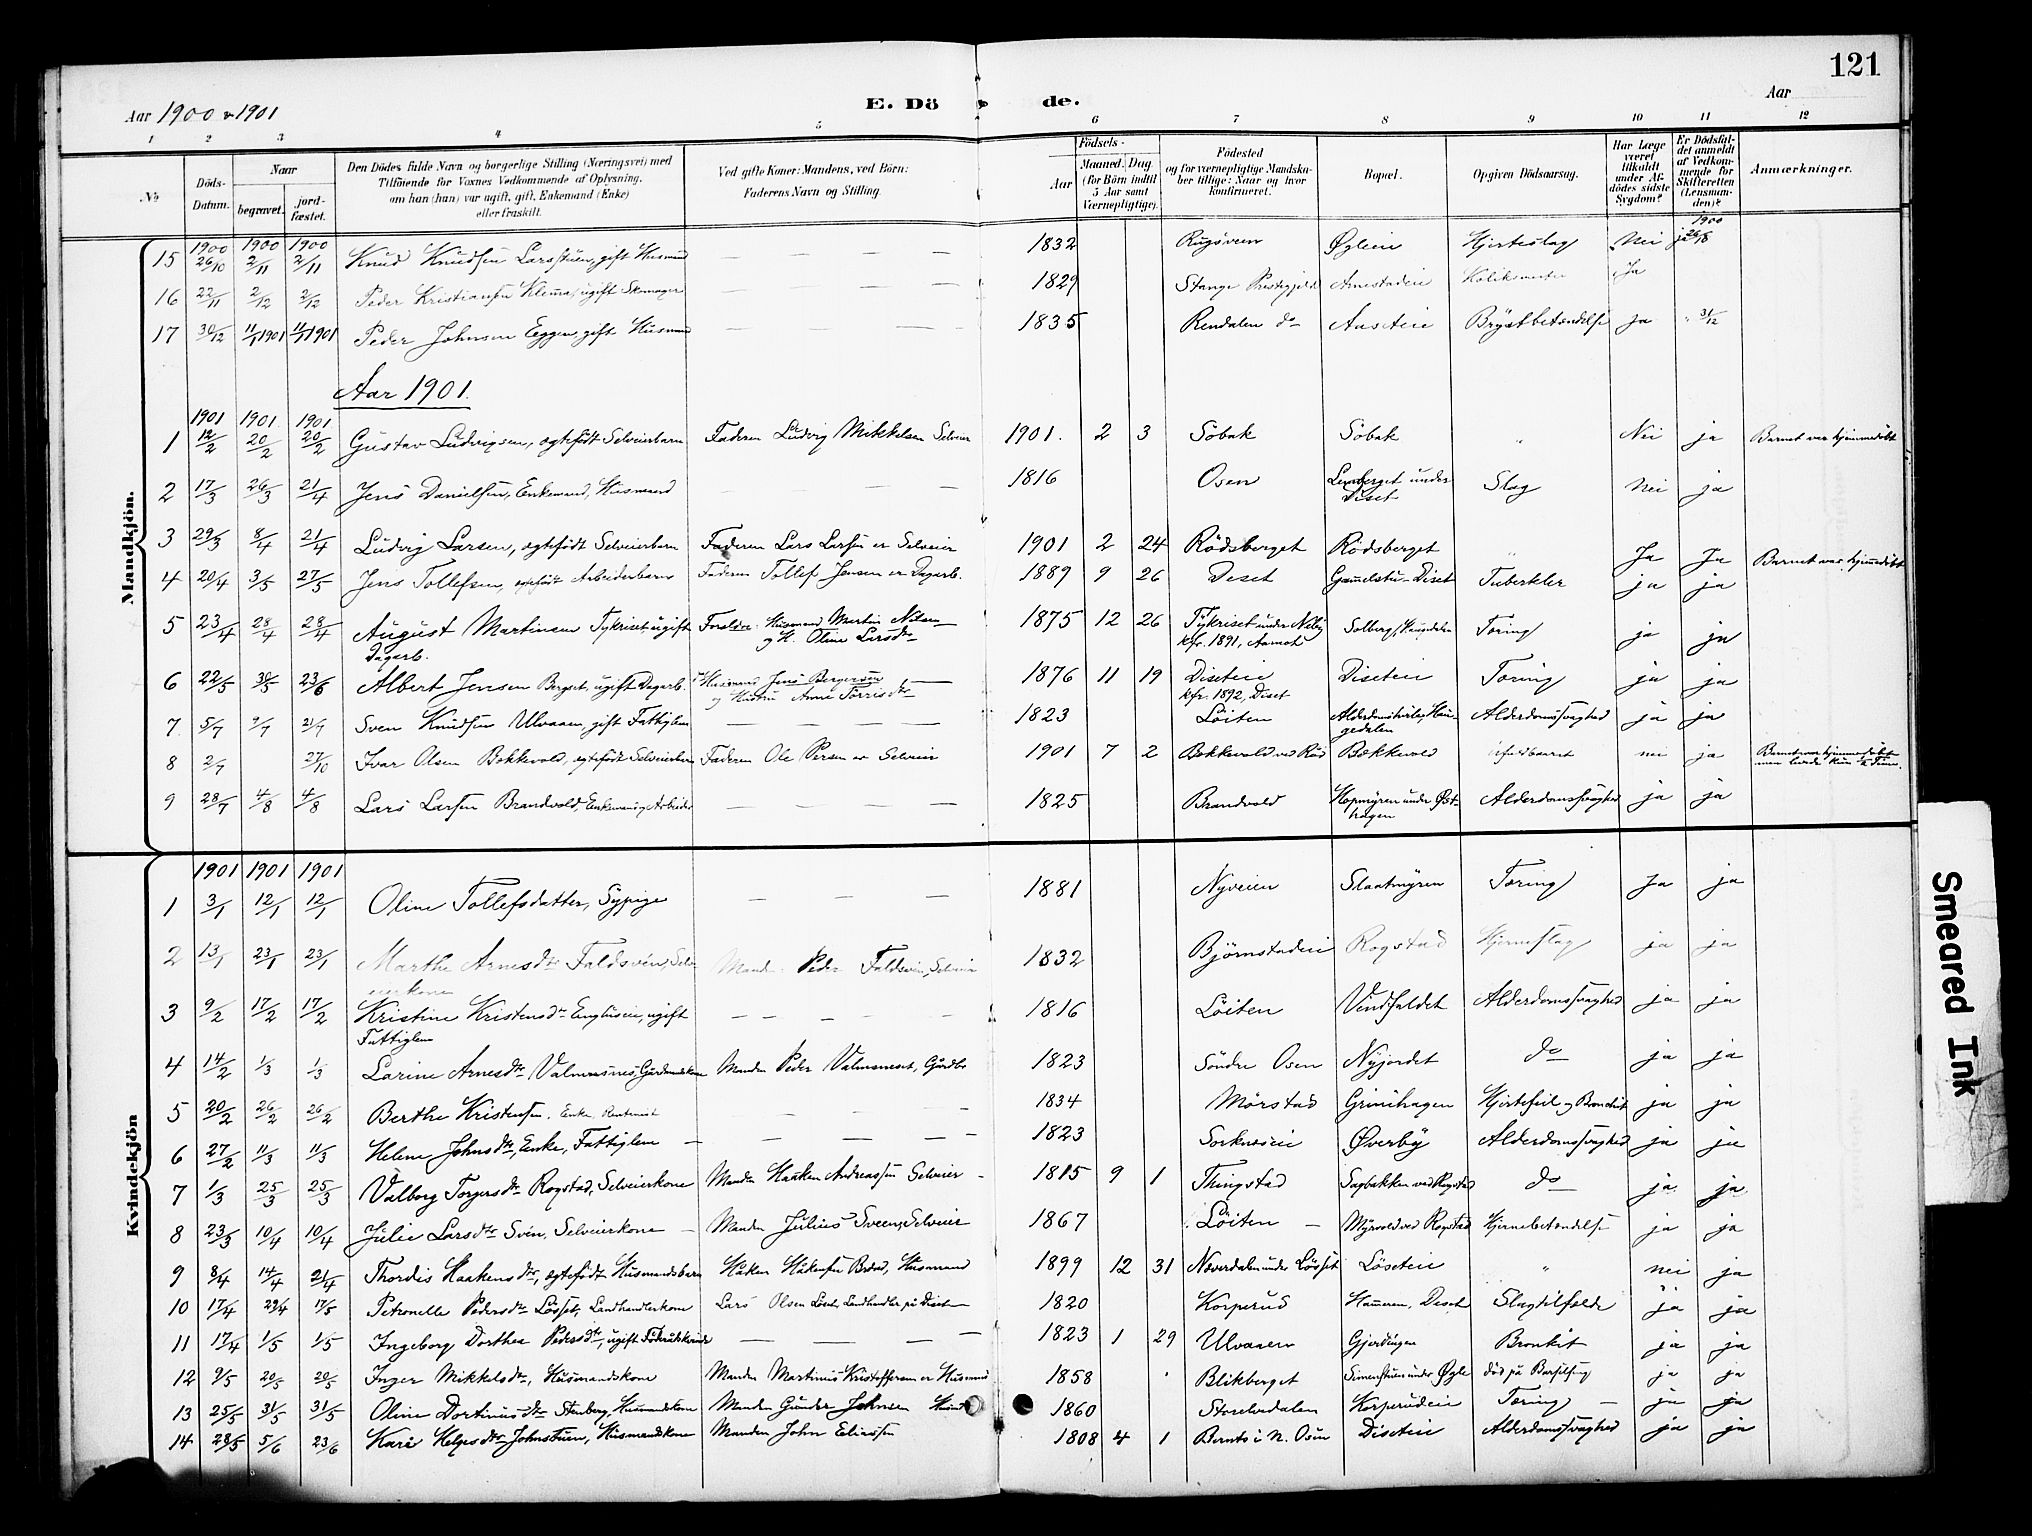 121
Aar 1900 & 1901 E. Dö de. Aar
1 2 3 4 5 6 7 8 9 10 11 12
No Döds-Datum. Naar begravet. jord-fæstet. Den Dödes fulde Navn og borgerlige Stilling (Næringsvei) med Tilföiende for Voxnes Vedkommende af Oplysning, om han (hun) var ugift, gift, Enkemand (Enke) eller fraskilt. Ved gifte Koner: Mandens, ved Börn: Faderens Navn og Stilling. Födsels- Aar Maaned. Dag (for Börn indtil 5 Aar samt Værnepligtige). Födested og for værnepligtige Mandskaber tillige: Naar og hvor konfirmeret. Bopæl. Opgiven Dödsaarsag. Har Læge været tilkaldt under Afdödes sidste Sygdom? Er Dödsfaldet anmeldt af Vedkommende for Skifteretten (Lensmanden)? Anmærkninger.
Mandkjön.
1900 1900 1900 1900
15 26/10 2/11 2/11 Knud Knudsen Larsstuen, gift Husmand — — — 1832 Rugsveen Øgleien Hjerteslag Nei ja 26/8
16 22/11 2/12 2/12 Peder Kristiansen Klemma, ugift Skomager — — — 1829 Stange Prestegjeld Arnestadeie Ja
17 30/12 11/1 1901 11/1 1901 Peder Johnsen Eggen, gift Husmand — — — 1835 Rendalen do Aaseteie Brystbetændelse ja " 31/12
Aar 1901.
1901 1901 1901
1 12/2 20/2 20/2 Gustav Ludvigsen, ægtefödt Selveierbarn Faderen Ludvig Mikkelsen Selveier 1901. 2 3 Sobak Sobak " Nei ja Barnet var hjemmedöbt
2 17/3 26/3 21/4 Jens Danielsen, Enkemand, Husmand — — — 1816 Osen Lemberget under Diset Slag Nei ja
3 29/3 8/4 21/4 Ludvig Larsen, ægtefödt Selveierbarn Faderen Lars Larsen er Selveier 1901 2 24 Rödsberget Rödsberget " Ja Ja Barnet var hjemmedöbt
4 20/4 3/5 27/5 Jens Tollefsen, ægtefödt Arbeiderbarn Faderen Tollef Jensen er Dagarb. 1889 9 26 Deset Gammelstu-Diset Tuberkler ja ja
5 23/4 28/4 28/4 August Martinsen Tykriset ugift Dagarb. Foreldre: Husmand Martin Nilsen og H. Oline Larsdtr 1875 12 26 Tykriset under Nelby kfr. 1891, Aamot Solberg, Haugedalen Tæring ja ja
6 22/5 30/5 23/6 Albert Jensen Berget, ugift Dagarb. Husmand Jens Bergersen og Hustru Anne Torrisdtr 1876 11 19 Diseteie kfr. 1892, Diset Diseteie Tæring ja ja
7 5/7 9/7 21/7 Sven Knudsen Ulvaaen, gift Fattiglem — — — 1823 Löiten Haugedalen Alderdomssvaghed ja ja
8 2/7 27/10 Ivar Olsen Bækkevold, ægtefödt Selveierbarn Faderen Ole Persen er Selveier 1901 7 2 Bækkevold ved Rud Bækkevold nei ja Barnet var hjemmedöbt men levede kun
9 28/7 4/8 4/8 Lars Larsen Brandvold, Enkemand, Arbeider — — — 1825 Brandvold Hopmyren under Østhagen Alderdomssvaghed ja ja
Kvindekjön
1901 1901 1901
1 3/1 12/1 12/1 Oline Tollefsdatter, Sypige — — — 1881 Nyveien Slaatmyren Tæring Ja ja
2 13/1 23/1 23/1 Marthe Arnesdtr Faldsveen, Selveierkone Manden Peder Faldsveen, Selveier 1832 Björnstadeie Rogstad Hjerneslag ja ja
3 9/2 17/2 17/2 Kristine Kristensdtr Enghuseie, ugift Fattiglem — — — — 1816 Löiten Vindfaldet Alderdomssvaghed ja ja
4 14/2 1/3 1/3 Larine Arnesdtr Valmsnes, Gårdmandskone Manden Peder Valmsneset, Gårdbr 1823 Söndre Osen Nyjordet do ja ja
5 20/2 26/2 26/2 Berthe Kristensen, Enke, Rentenist — — — 1834 Mörstad Grinihagen Hjertefeil og Bronchit ja ja
6 27/2 11/3 11/3 Helene Johnsdtr, Enke, Fattiglem — — — — 1823 Sorknæseie Øverby Alderdomssvaghed ja ja
7 1/3 25/3 25/3 Valborg Torgersdtr Rogstad, Selveierkone Manden Haaken Andreassen Selveier — 1815 9 1 Thingstad Sagbakken ved Rogstad do ja ja
8 23/3 10/4 10/4 Julie Larsdtr Sveen, Selveierkone — Manden Julius Sveen, Selveier 1867 Löiten — Myrvold ved Rogstad Hjernebetændelse ja ja
9 8/4 14/4 21/4 Thordis Haakensdtr, ægtefödt Husmandsbarn Håken Håkensen Husmand 1899 12 31 Næverdalen under Löset Löseteie " nei ja
10 17/4 29/4 17/5 Petronelle Pedersdtr Lösset, Landhandlerkone Lars Olsen Löset, Landhandler på Diset 1820 Korperud Hammeren, Deset Slagtilfælde ja ja
11 17/4 1/5 1/5 Ingeborg Dorthea Pedersdtr, ugift Föderådskvinde — — — 1823 1 29 Ulvaaen Gjerdingen Bronkit ja ja
12 9/5 20/5 20/5 Inger Mikkelsdtr, Husmandskone Manden Martinus Kristoffersen er Husmand 1858 Blikberget Simenstuen under Øgle död på Barselseng ja ja
13 25/5 31/5 31/5 Oline Dortinusdtr Stenberg, Husmandskone Manden Gunder Johnsen 1860 Storelvedalen Korperudeie Tæring — ja ja
14 28/5 5/6 23/6 Kari Helgesdtr Johnstuen, Husmandskone Manden John Eliassen 1808 4 1 Bernts i N. Osen Diseteie Alderdomssvaghed ja ja
Smeared Ink